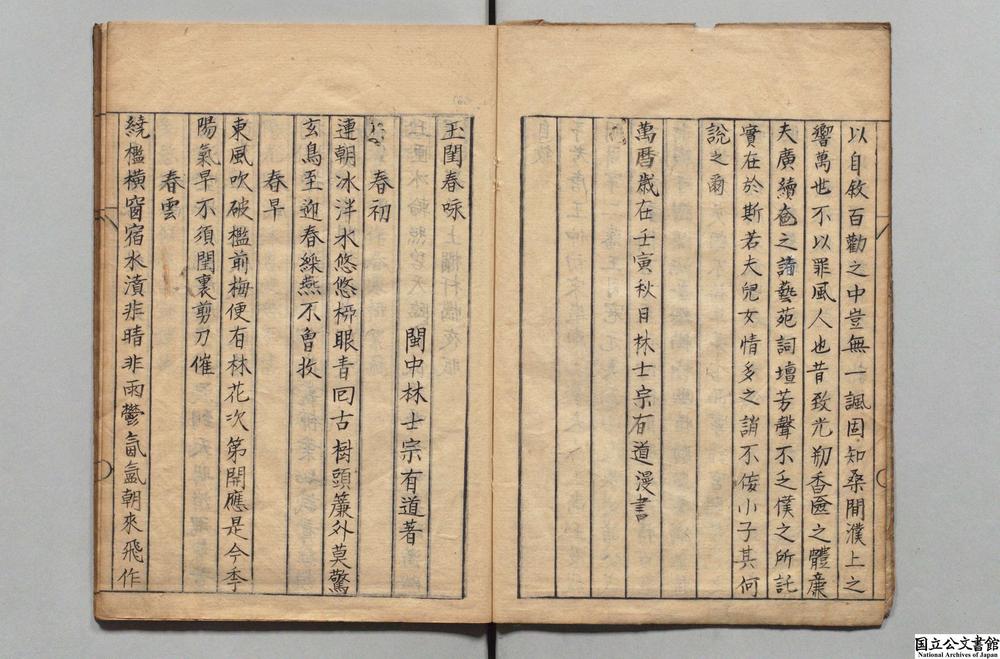 以自敘百勸之中豈無一諷固知桑間濮上之
響萬世不以罪風人也昔致光刱香奩之體廉
夫廣續奩之諸藝苑詞壇芳聲不乏僕之所託
實在於斯若夫兒女情多之誚不佞小子其何
說之爾
萬曆歲在壬寅秋日林士宗有道漫書
玉閨春咏
閩中林士宗有道著
春初
連朝冰泮水悠悠柳眼青回古樹頭簾外莫驚
玄鳥至迎春綵燕不曾收
春早
東風吹破檻前梅便有林花次第開應是今年
陽氣早不須閨裏剪刀催
春雲
繞檻橫窗宿水濆非晴非雨鬱氤氳朝來飛作
国立公文書館
National Archives of Japan